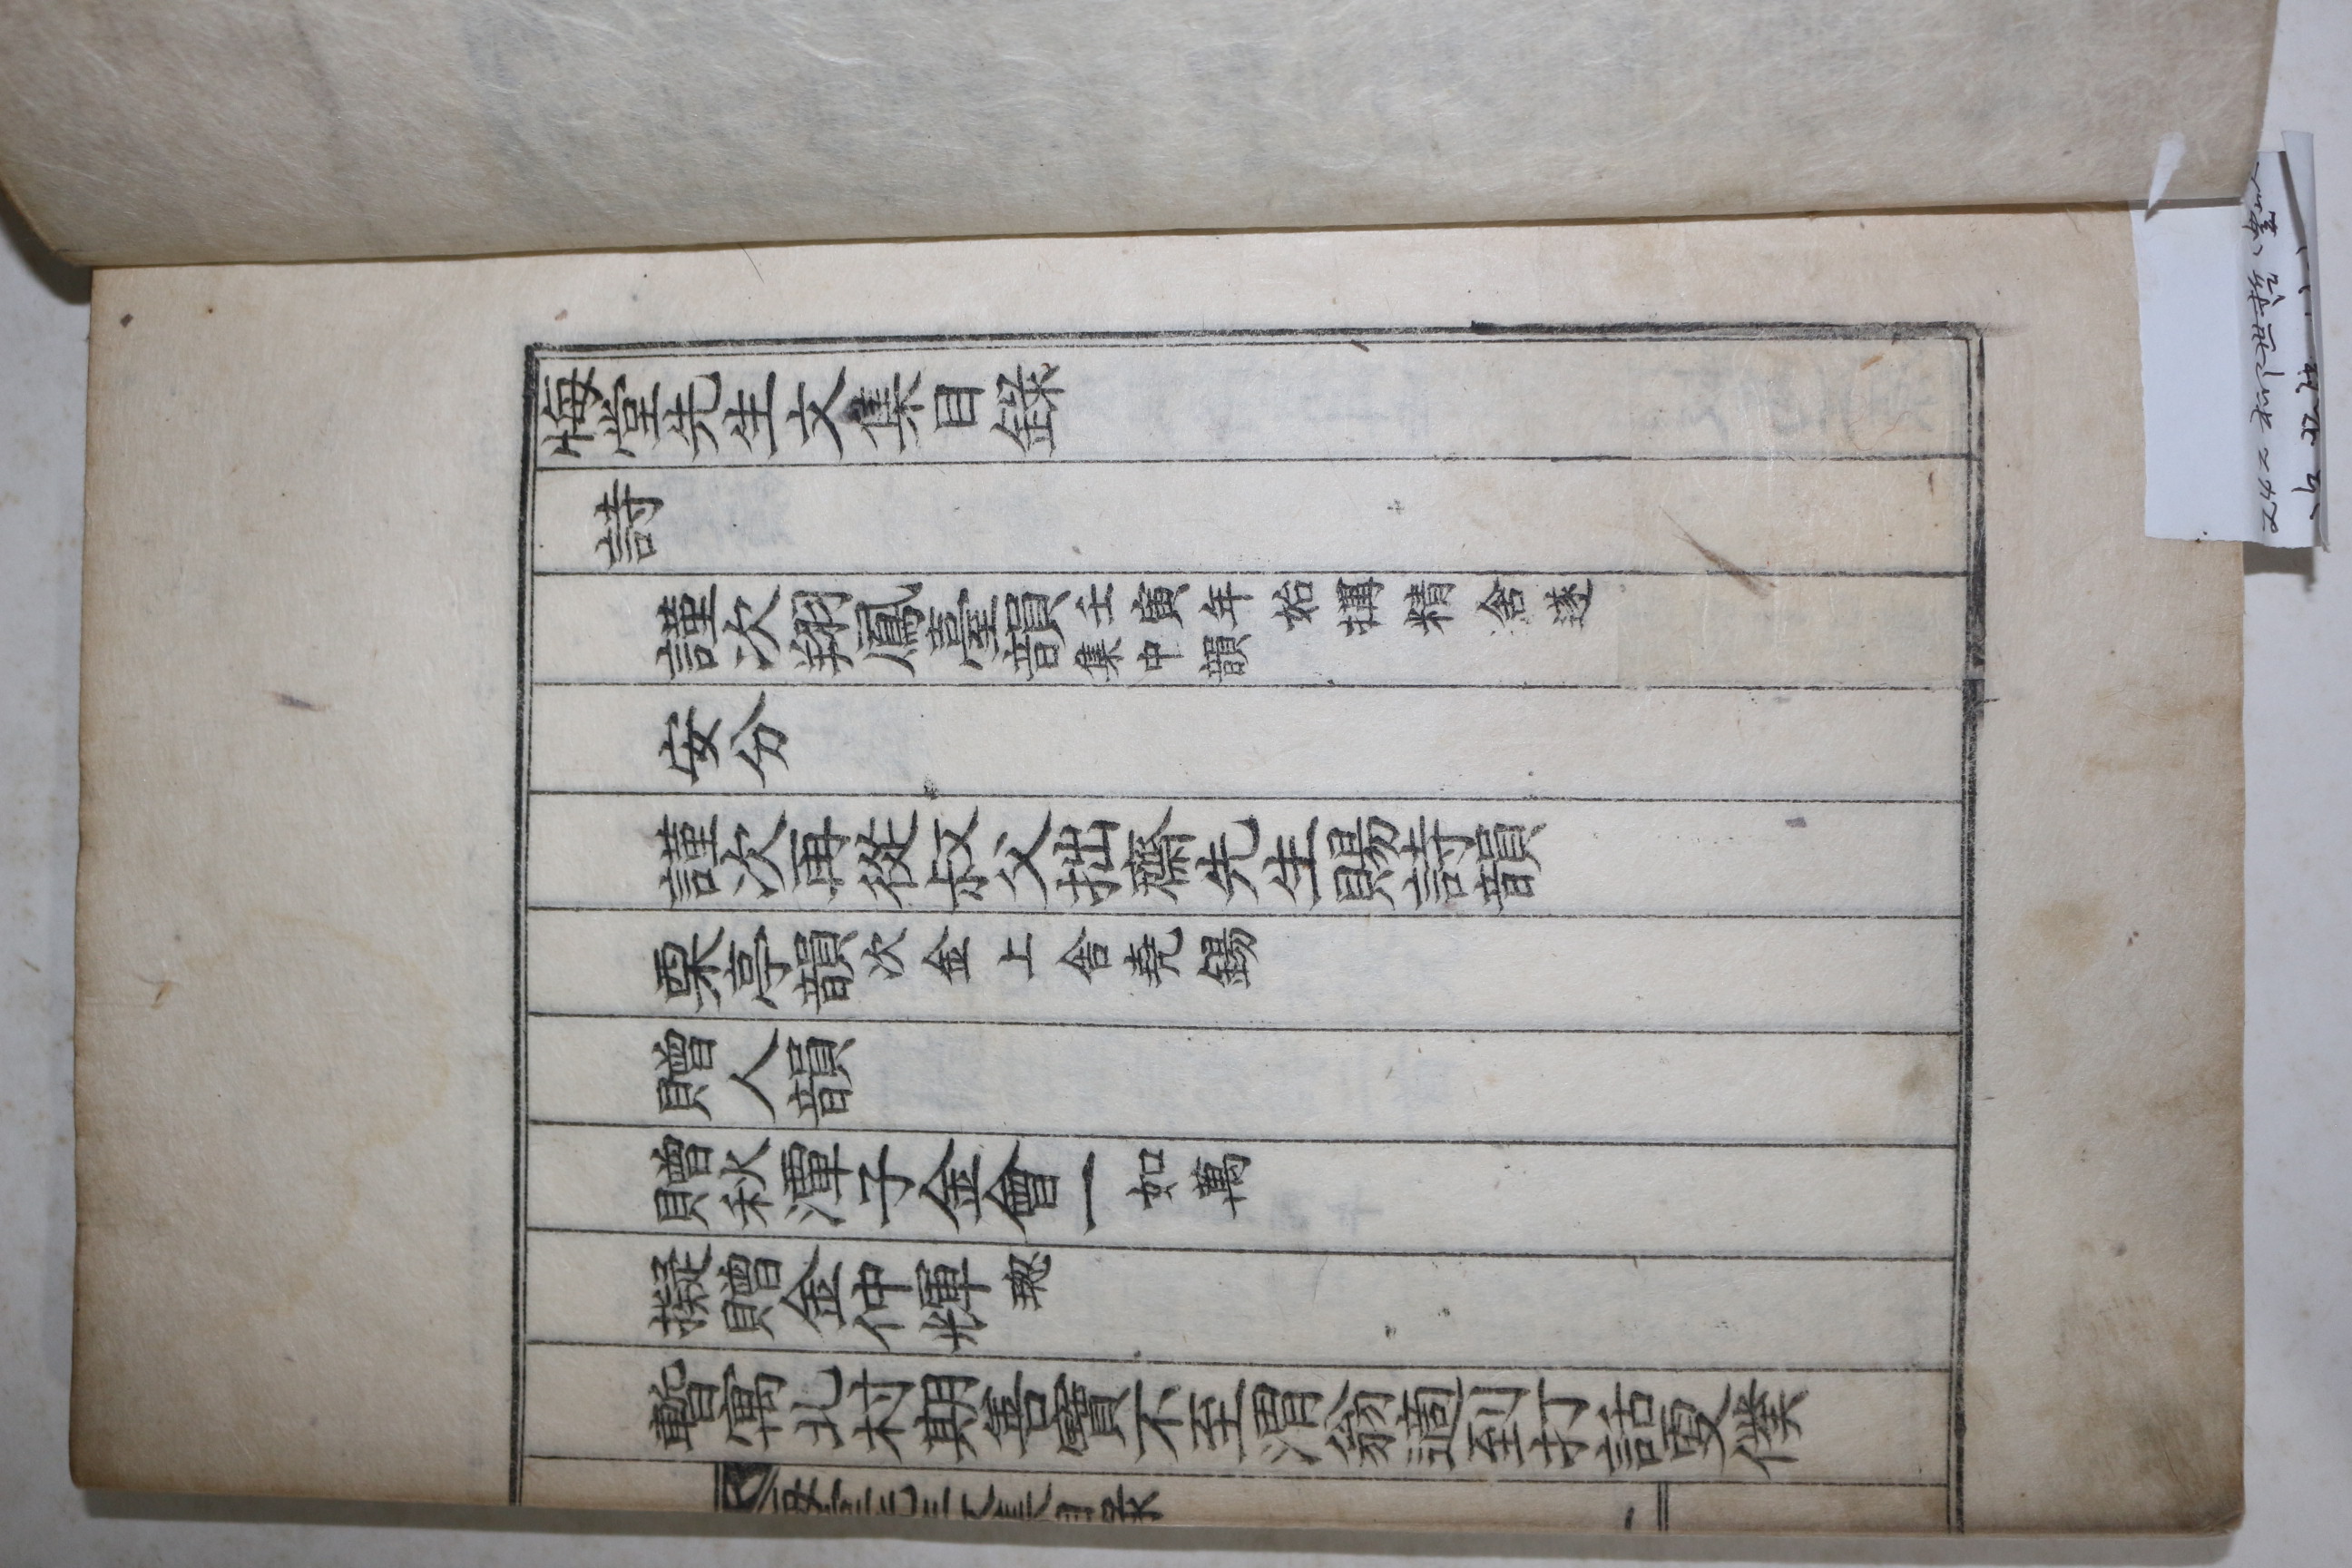 悔堂先生文集目錄
詩
謹次翔鳳臺韻 壬寅年始搆精舍遂
集中韻
安分
謹次再從叔父拙齋先生賜詩韻
栗亭韻 次金上舍堯錫
贈人韻
贈秋潭子金會一 如萬
擬贈金仲輝
暫寓北村期善寶不至渭翁適到打話更僕